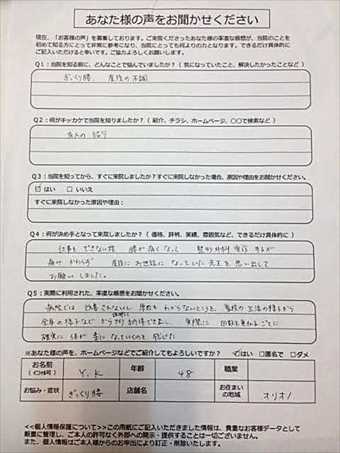 あなた様の声をお聞かせください
現在、「お客様の声」を募集しております。ご来院くださったあなた様の率直な感想が、当院のことを
初めて知る方にとって非常に参考になり、当院にとっても何よりの力となります。できるだけ具体的に
ご記入いただけると幸いです。ご協力よろしくお願いします。
Q1：当院を知る前に、どんなことで悩んでいましたか？（気になっていたこと、解決したかったことなど）
ぎっくり腰、産後の不調
Q2：何がキッカケで当院を知りましたか？（紹介、チラシ、ホームページ、〇〇で検索など）
友人の紹介
Q3：当院を知ってから、すぐに来院しましたか？すぐに来院しなかった場合、原因や理由をお聞かせください。
はい □ いいえ
すぐに来院しなかった原因や理由：
Q4：何が決め手となって来院しましたか？（価格、評判、実績、雰囲気など、できるだけ具体的に）
仕事も できない程 腰が痛くなって 整形外科 受診 するが
産後に お世話に なっていた 先生を 思い出して
お願いしました。
Q5：実際に利用された、率直な感想をお聞かせください。
病院では 改善されないし 原因も わからないところを、
感じた
※あなた様の声を、ホームページなどでご紹介してもよろしいですか？ はい □匿名で □ダメ
お名前
（イニシャル可）
Y.K
年齢
48
職業
お悩み・症状
ぎっくり腰
店舗名
お住まい
の地域
<<個人情報保護について>>この用紙にご記入いただきました情報は、貴重なお客様データとして
厳重に管理し、ご本人の許可なく外部への開示・提供することは一切ございません。
また、個人情報はご本人様からのお申出により訂正・削除いたします。